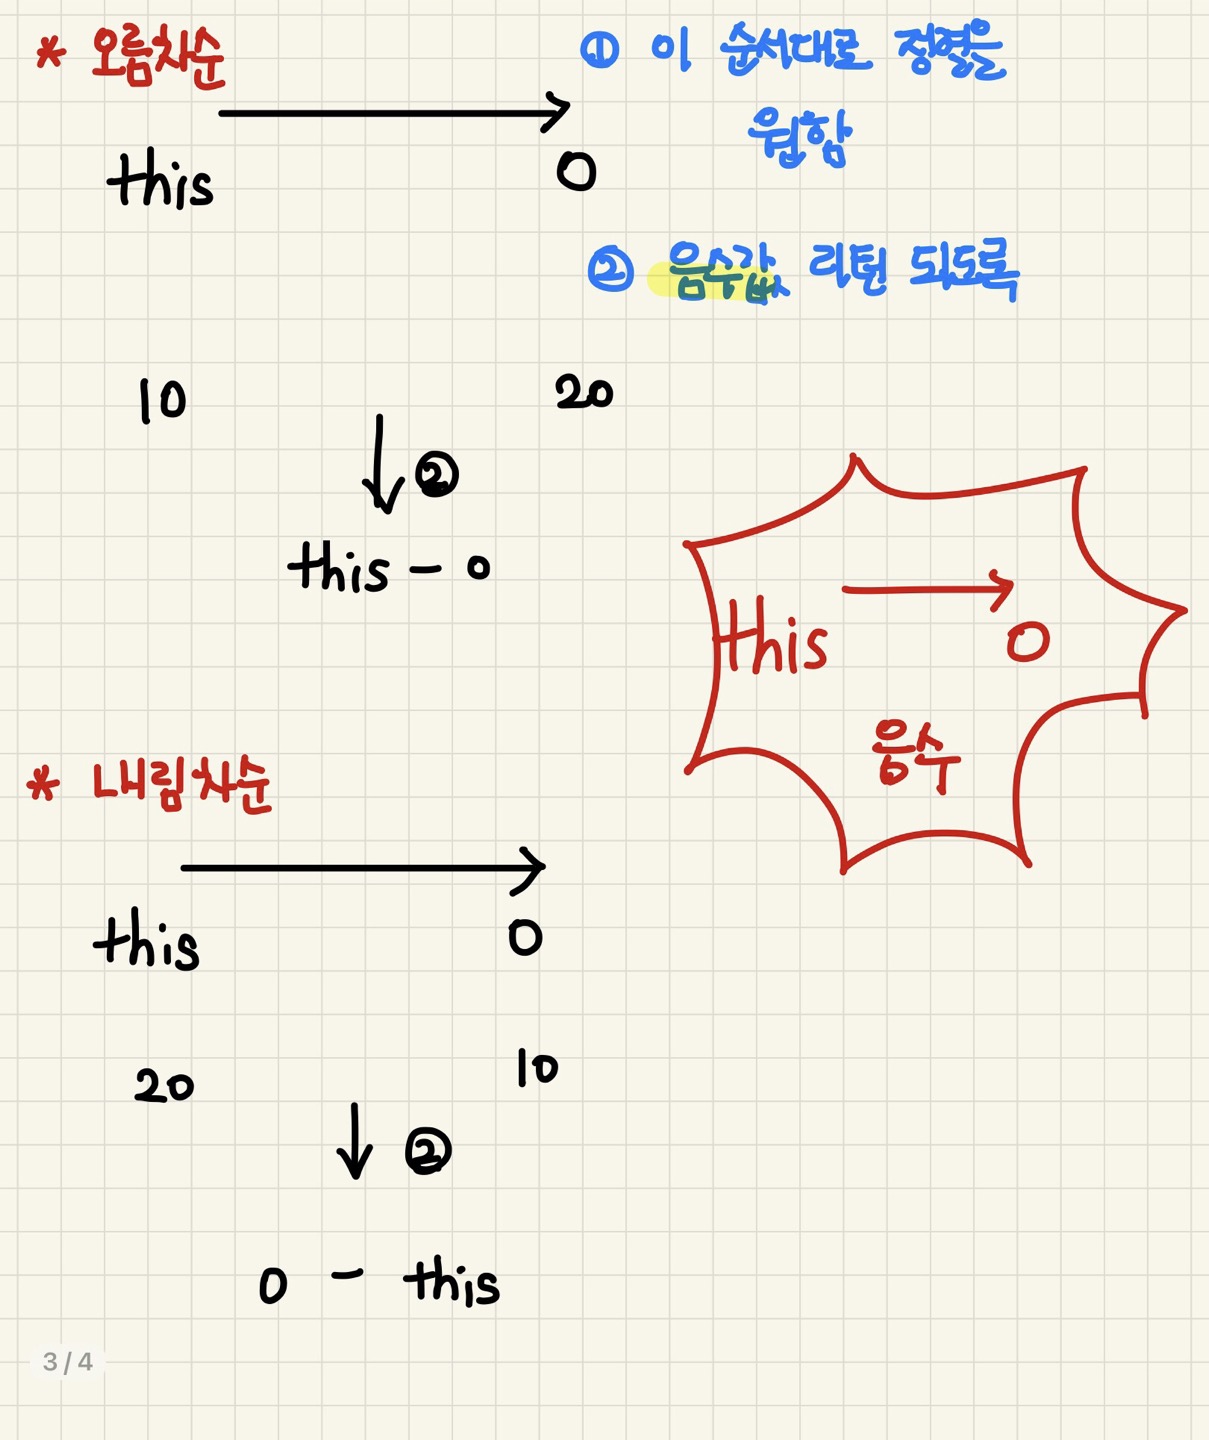 * 오름차순
this → o
① 이 순서대로 정렬을
원함
② 음수값 리턴 되도록
10 20
↓ ②
this - o
this → o
음수
* 내림차순
this → o
20 10
↓ ②
o - this
3/4